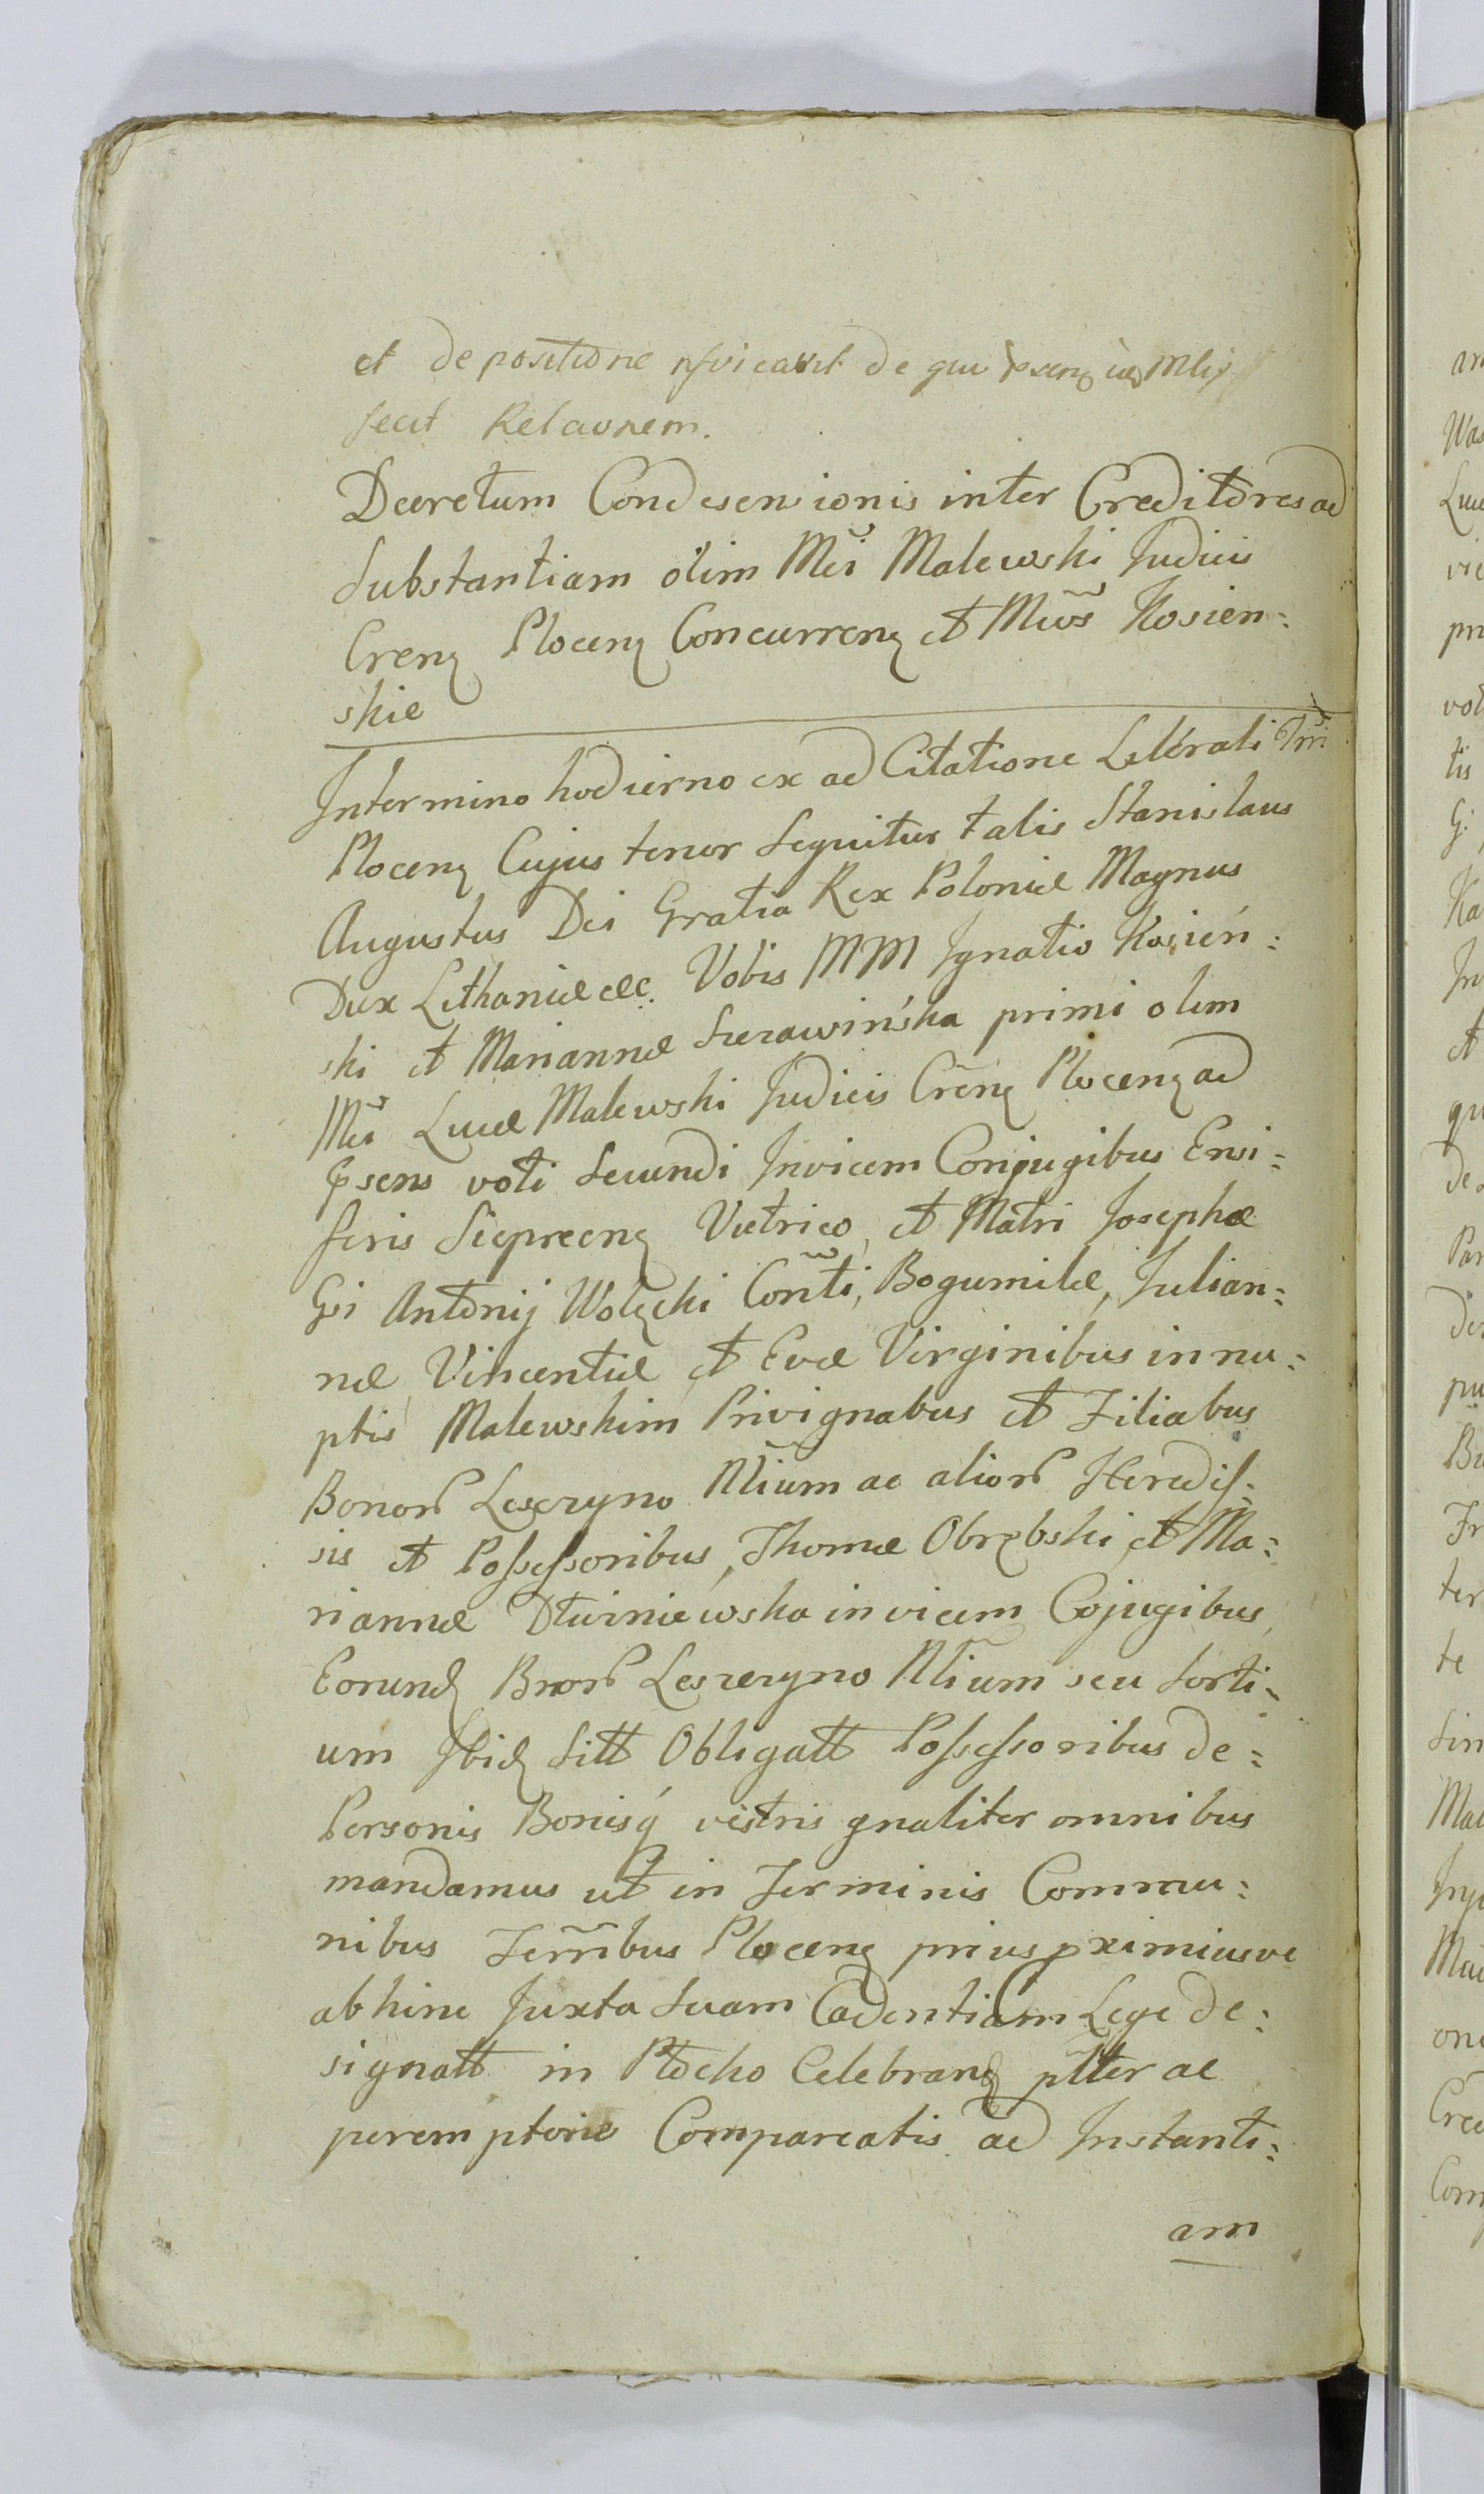 et depositione
fecit Relaonem.
Decretum Condescensionis inter Creditores ad
Substantiam olim Mci Malewski Judicis
Crenz Plocenz Concurrenz et Mcos Kosien:
skie
Intermino hodierno ex ad Citatione Litterali Trri
Plocenz Cujus tenor Sequitur talis Stanislaus
Augustus Dei Gratia Rex Poloniæ Magnus
Dux Lithaniæ etc. Vobis MM Ignatio Kosień:
ski et Mariannæ Szrawińska primi olim
Mci Lucæ Malewski Judicis Crenz Plocenz ad
Psens voti Secundi Invicem Conjugibus Ensi:
feris Siepreenz Vietrico, et Matri Josephæ
Gsi Antonij Wolęcki Conti, Bogumilæ, Julian:
næ Vincentiæ et Evæ Virginibus innu:
ptis Malewskim Privignabus et Filiabus
Bonor Leszczyno Nlium ac alior Heredis:
sis et Possessoribus, Thomæ Obrębski et Ma:
riannæ Dłuiniewska invicem Cojugibus,
Eorund Bnor Leszczyno Nlium seu Sorti:
um Ibid Sitt Obligatt Possessoribus de:
Personis Bonisq vestris gnaliter omnibus
mandamus ut in Terminis Commu:
nibus Terribus Plocenz prius pximiusve
abhinc Juxta Suam Cadentiam Lege de:
signatt in Płocko Celebrand pltter ac
peremptorie Compareatis ad Instanti:
am